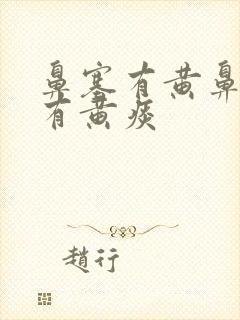 鼻塞有黄鼻
有黄痰
趙行